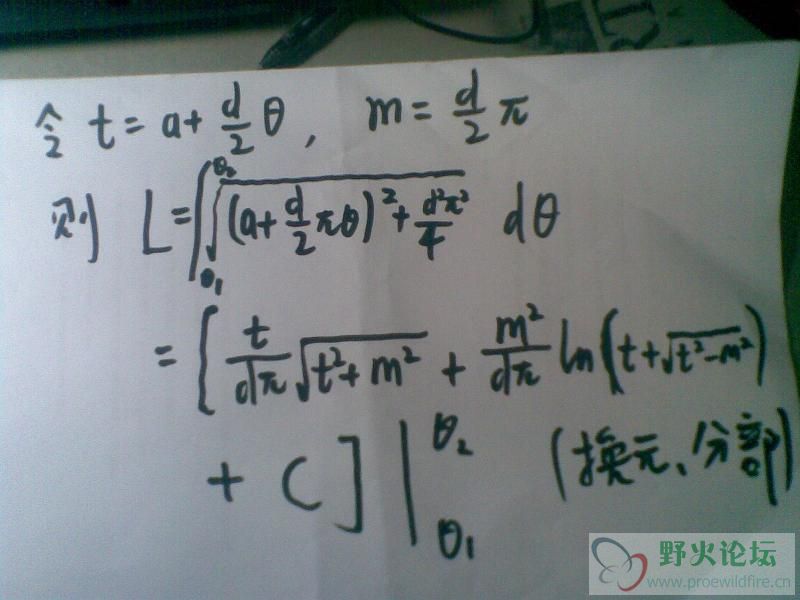 令 t = a + d/2 θ, m = d/2 π
则 L = ∫_{θ₁}^{θ₂} √((a + d/2 πθ)² + d²π²/4) dθ
= [ t/dπ √(t² + m²) + m²/dπ ln(t + √(t² - m²))
+ C ] |_{θ₁}^{θ₂} (换元、分部)
野火论坛
www.proewildfire.cn